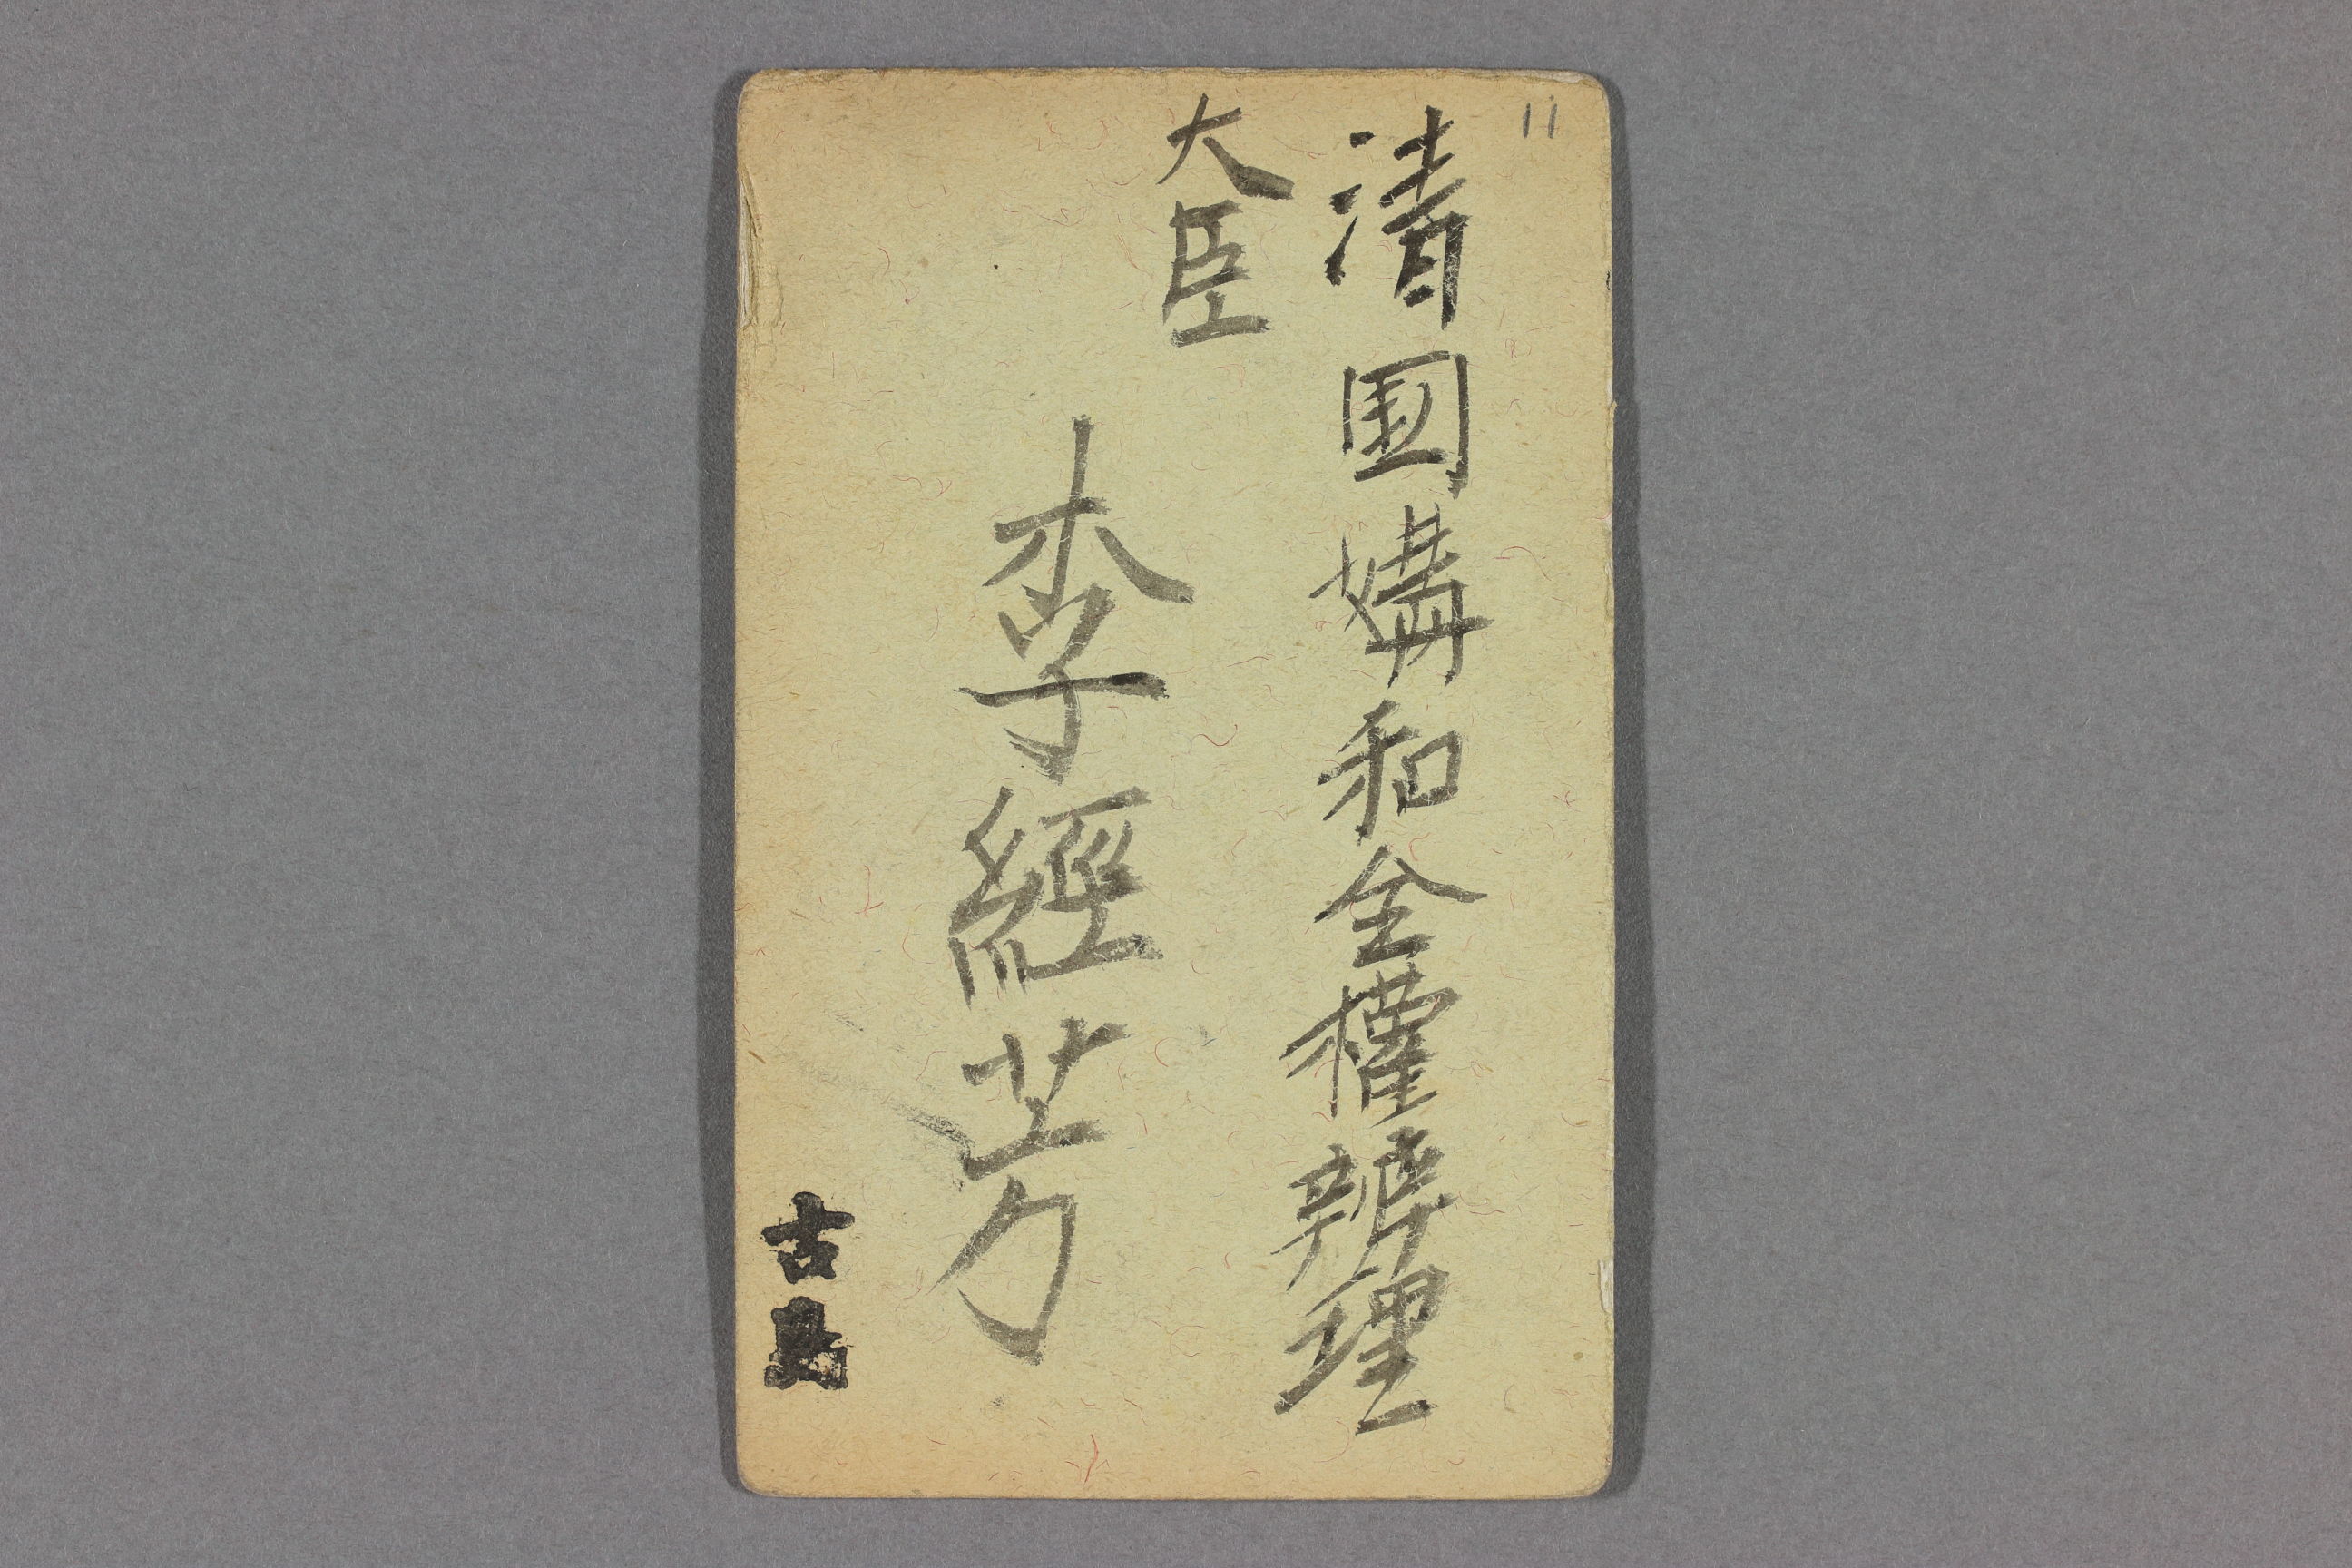 11
清國媾和全權辦理
大臣
李經芳
古島